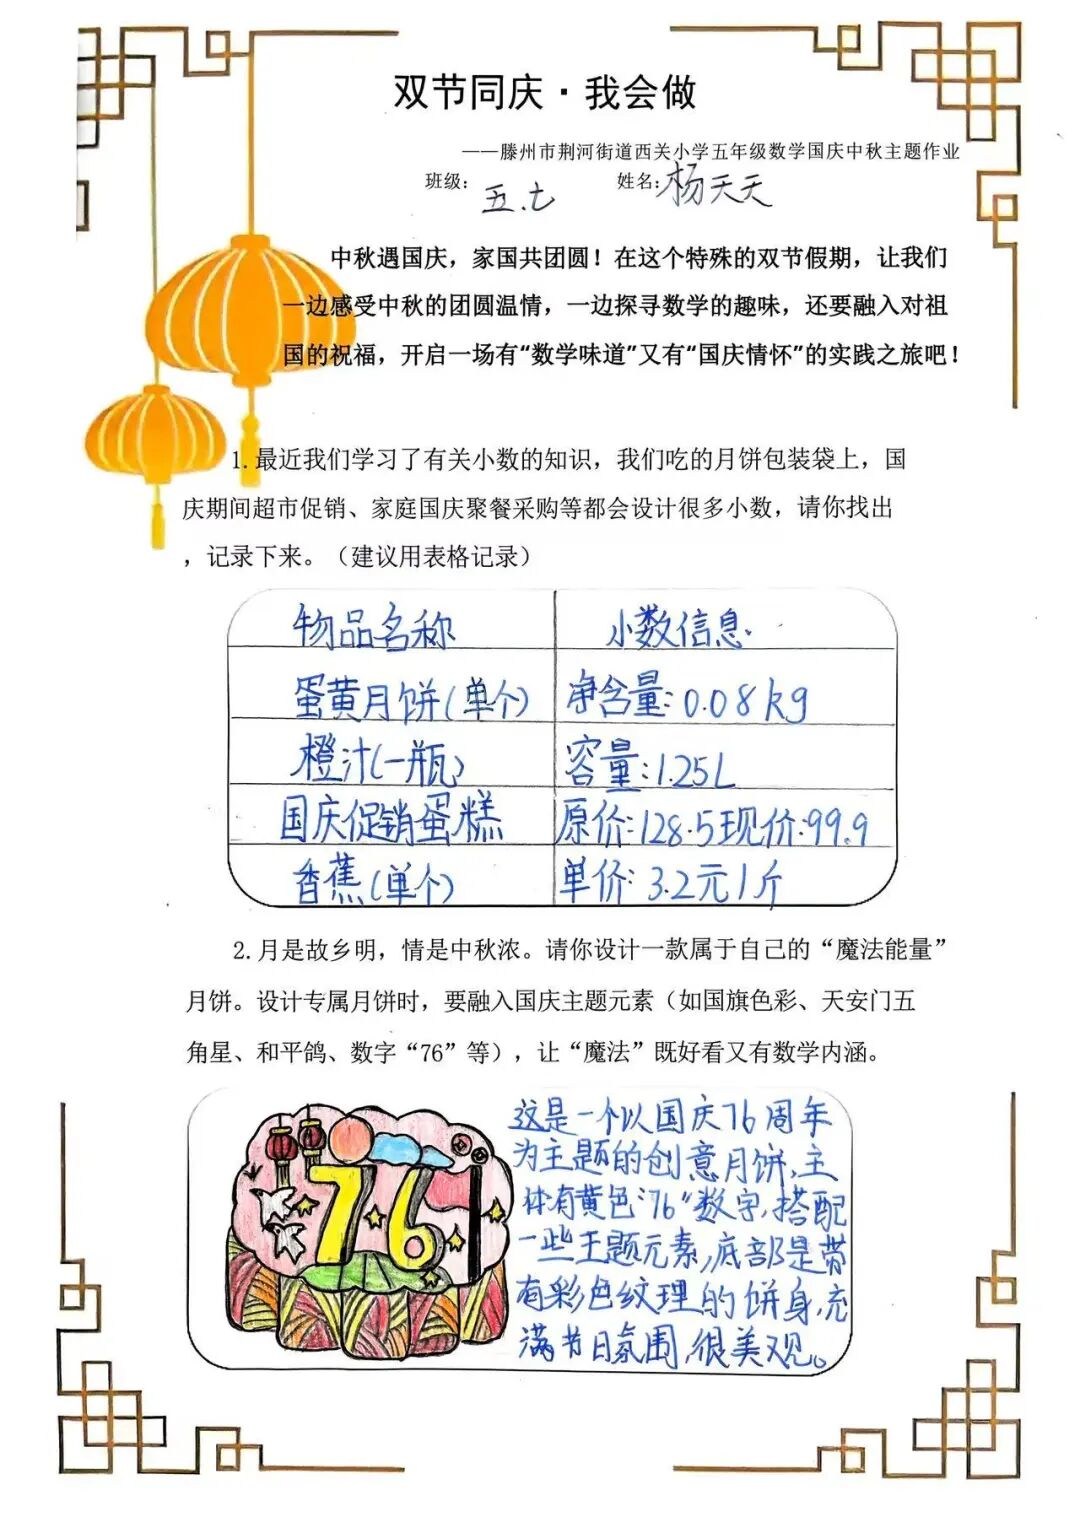 双节同庆·我会做
——滕州市荆河街道西关小学五年级数学国庆中秋主题作业
班级：五.七 姓名：杨天天
中秋遇国庆，家国共团圆！在这个特殊的双节假期，让我们
一边感受中秋的团圆温情，一边探寻数学的趣味，还要融入对祖
国的祝福，开启一场有“数学味道”又有“国庆情怀”的实践之旅吧！
1.最近我们学习了有关小数的知识，我们吃的月饼包装袋上，国
庆期间超市促销、家庭国庆聚餐采购等都会设计很多小数，请你找出
，记录下来。（建议用表格记录）
物品名称 小数信息.
蛋黄月饼(单个) 净含量:0.08kg
橙汁(一瓶) 容量:1.25L
国庆促销蛋糕 原价:128.5现价:99.9
香蕉(单个) 单价:3.2元1斤
2.月是故乡明，情是中秋浓。请你设计一款属于自己的“魔法能量”
月饼。设计专属月饼时，要融入国庆主题元素（如国旗色彩、天安门五
角星、和平鸽、数字“76”等），让“魔法”既好看又有数学内涵。
76
这是一个以国庆76周年
为主题的创意月饼,主
体有黄色“76”数字,搭配
一些主题元素,底部是带
有彩色纹理的饼身,充
满节日氛围,很美观。